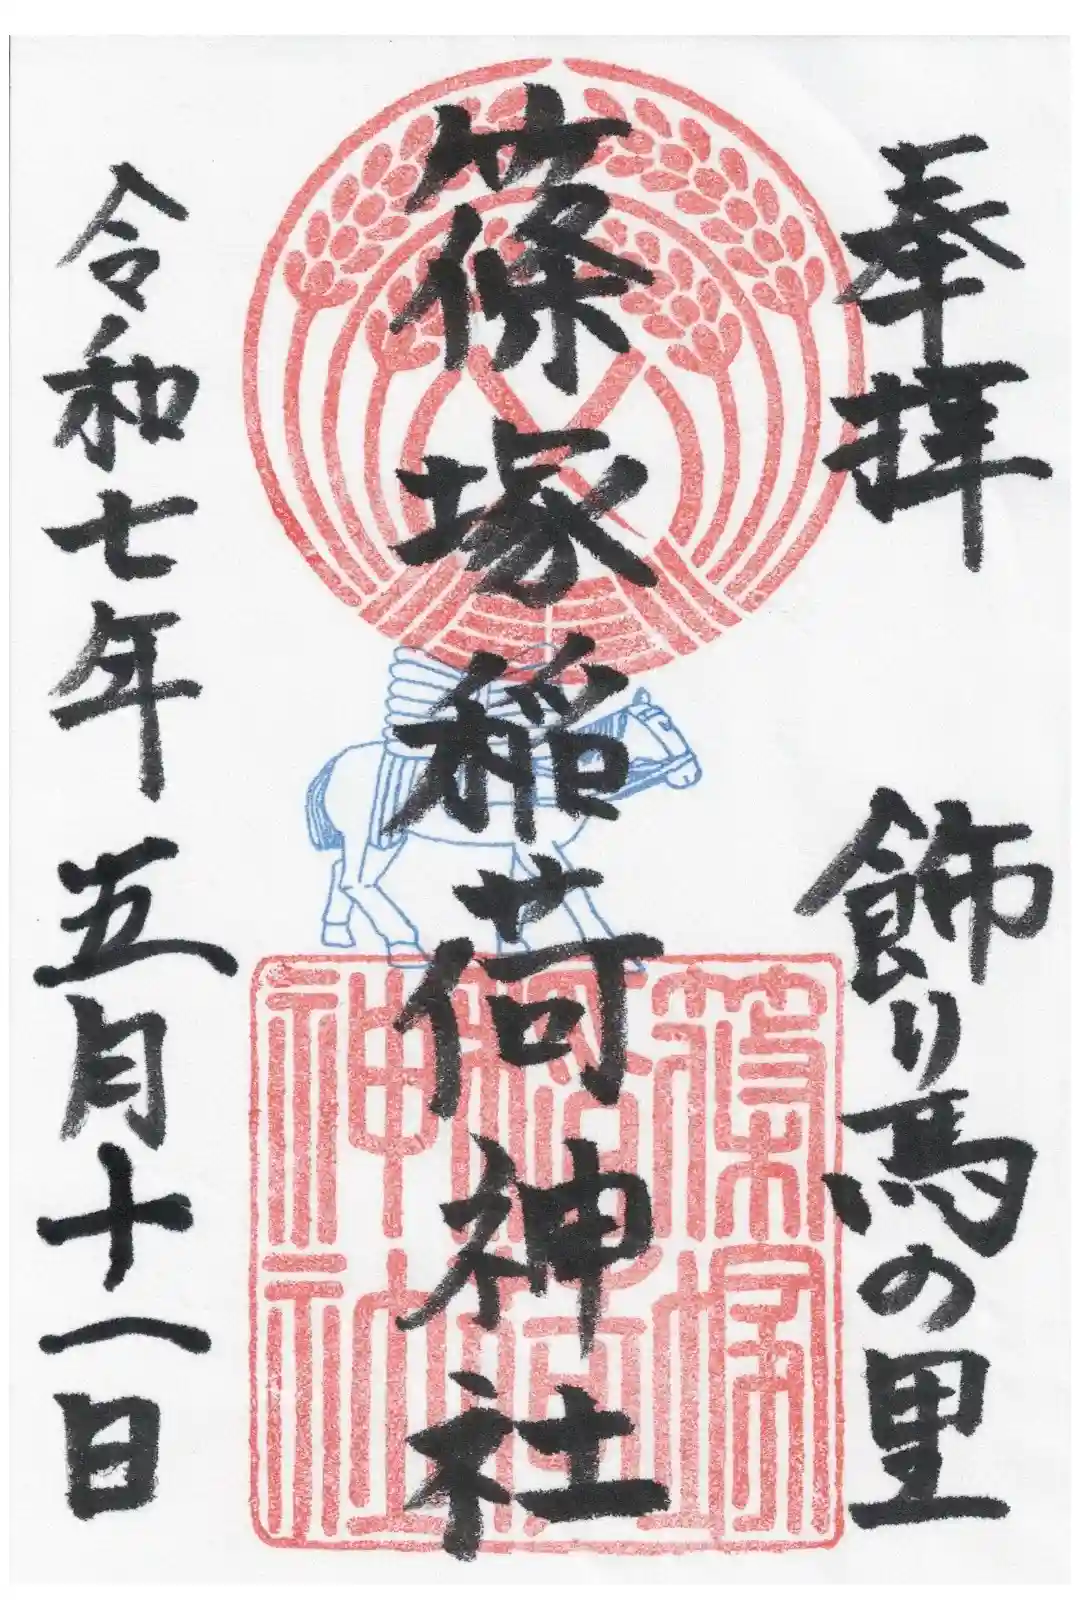 奉拝
飾り馬の里
篠塚稲荷神社
篠塚
稲荷
神社
令和七年五月十一日